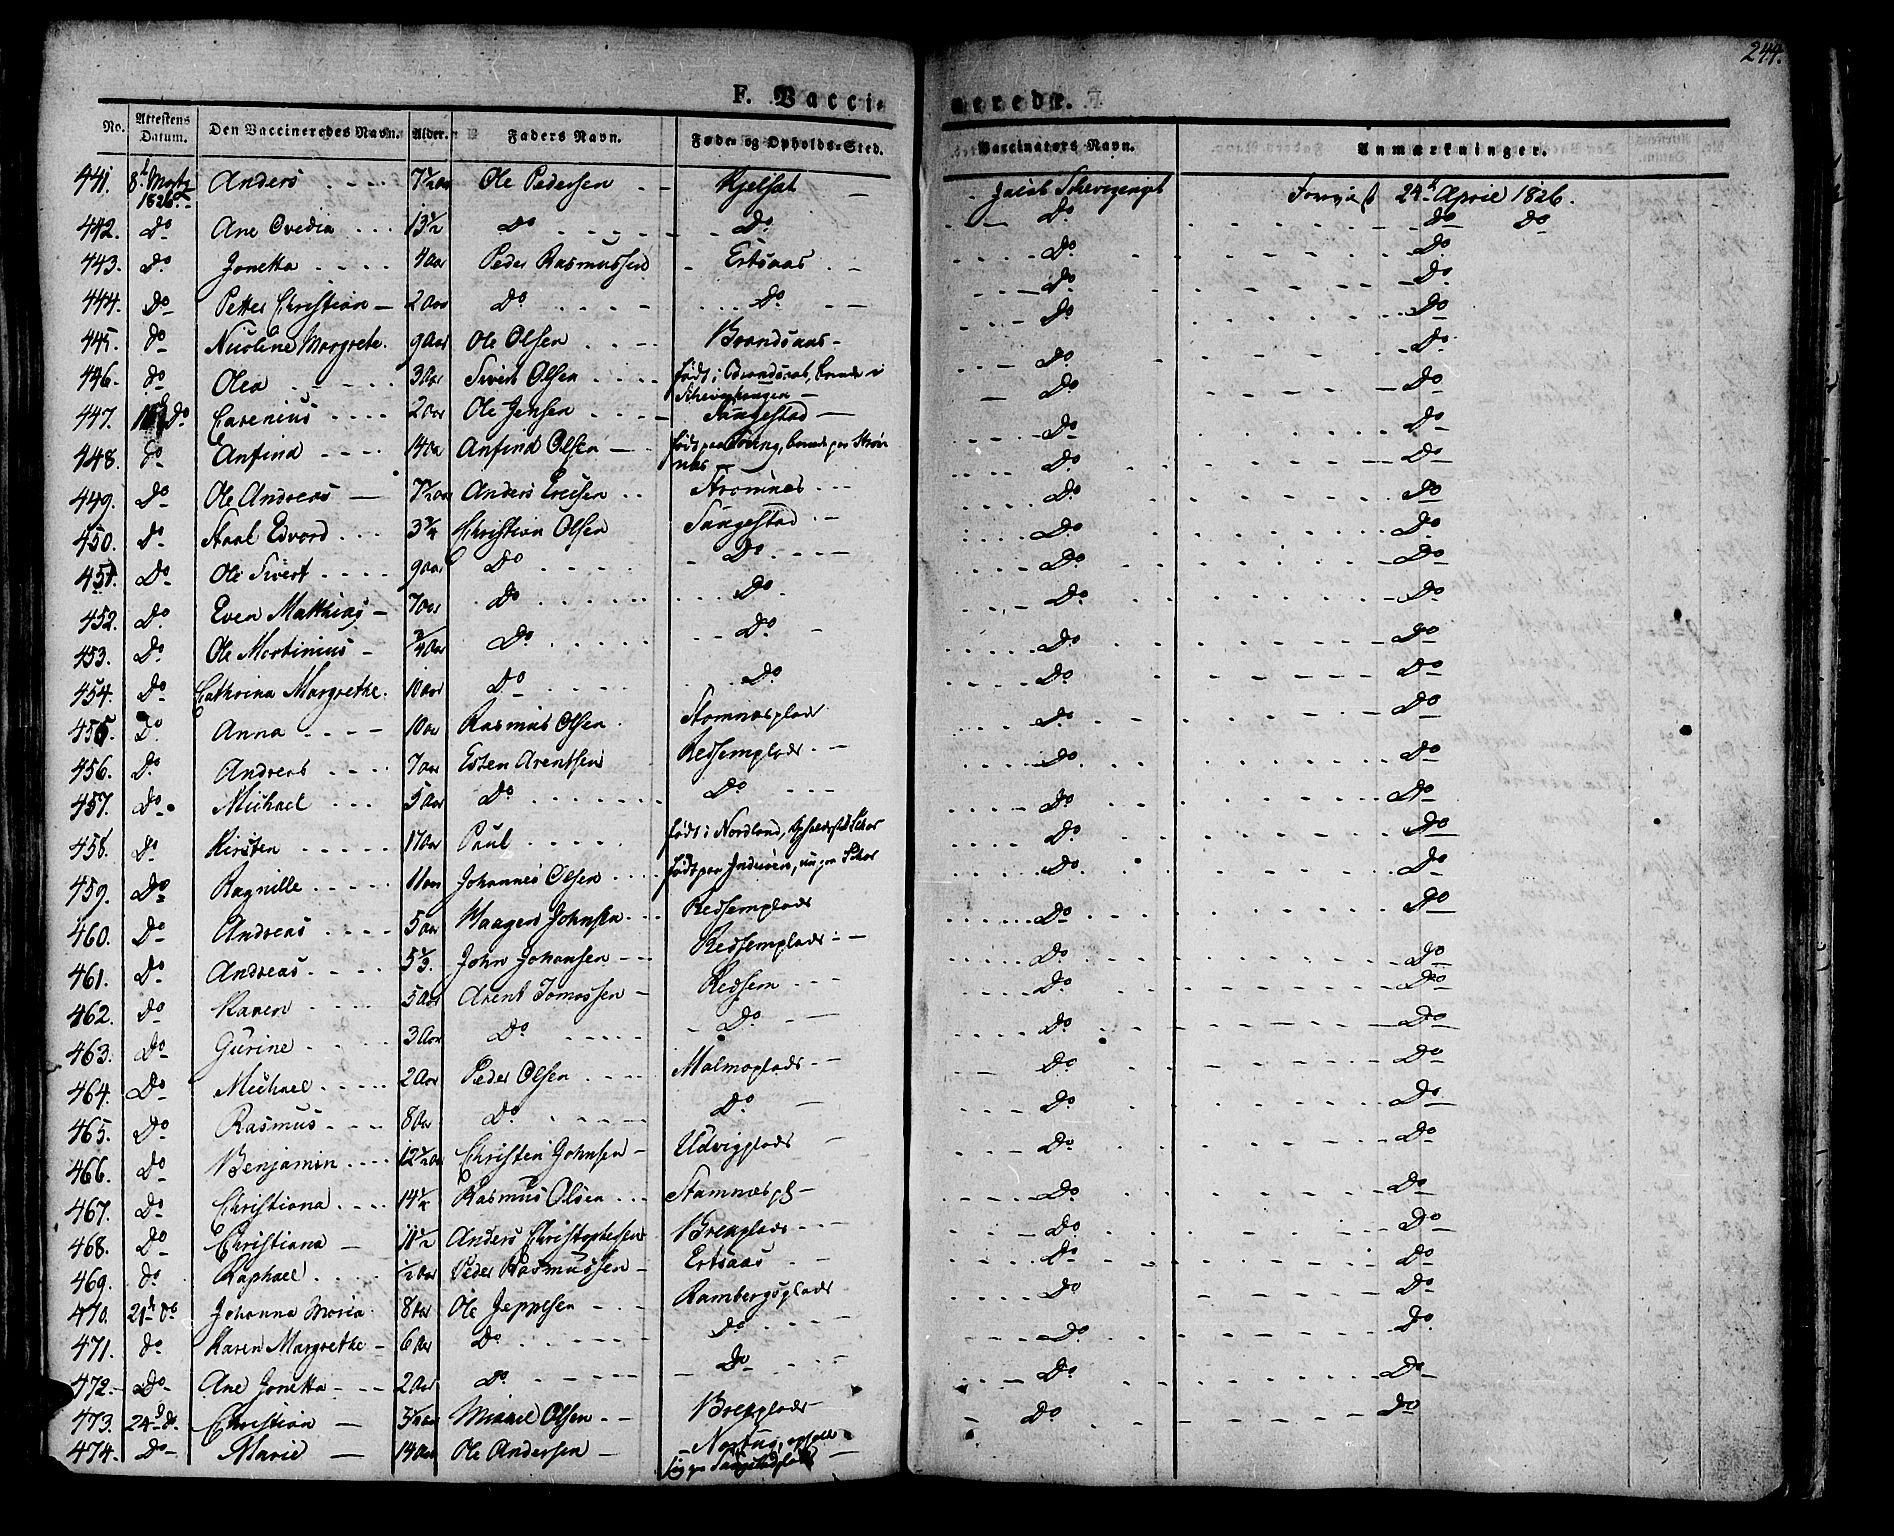 244.
F. Vacci- nerede.
No. Attestens Datum. Den Vaccineredes Navn. Alder. Faders Navn. Føde- og Opholds-Sted. Vaccinators Navn. Anmærkninger.
441. 8de Martz 1826. Anders 7½ aar Ole Pedersen Kjelsat Jacob 24de April 1826.
442. Do Ane Ovedia 13½ Do Do Do do do
443. Do Jonetta 4 aar Peder Rasmussen Ertsaas Do Do
444. Do Petter Christian 2 aar Do Do Do Do
445. do Nicoline Margrete 9 aar Ole Olsen Brandsaas Do Do
446. do Olea 3 aar Sivert Olsen født i Do Do
447. Do Carenius 2 aar Ole Jensen Sungestad Do Do
448. do Anfind 14 aar Anfind Olsen født paa Do Do
449. Do Ole Andreas 7½ aar Anders Strømnes Do Do
450. Do Staal Edvard 3¾ Christian Olsen Sungestad Do Do
451. Do Ole Sivert 9 aar Do Do Do Do
452. Do Even Matthias 7 aar Do Do Do Do
453. Do Ole Martinius ¾ aar Do Do Do Do
454. Do Cathrina Margrethe 10 aar Do Do Do Do
455. Do Anna 10 aar Rasmus Olsen Stamnesplads Do Do
456. Do Andreas 7 aar Esten Arentsen Redsemplads Do Do
457. Do Michael 5 aar Do Do Do Do
458. Do Kirsten 17 aar Paul født i Nordland, Do Do
459. Do Ragnille 11 aar Johannes Olsen født paa Inderøen, Do Do
460. Do Andreas 5 aar Haagen Johnsen Redsemplads Do Do
461. Do Andreas 5⅓ John Johansen Redsemplads Do Do
462. Do Karen 5 aar Arent Tomassen Redsem Do Do
463. Do Gurine 3 aar Do Do Do Do
464. Do Michael 2 aar Peder Olsen Malmoplads Do Do
465. Do Rasmus 8 aar Do Do Do Do
466. Do Benjamin 12½ aar Christen Johnsen Udvigplads Do Do
467. Do Christiana 14½ Rasmus Olsen Stamnespl Do Do
468. Do Christiana 11½ Anders Christophersen Brekplads Do Do
469. do Raphael ½ aar Peder Rasmussen Ertsaas Do Do
470. 21de do Johanna Maria 8 aar Ole Jeppesen Rambergsplads Do Do
471. do Karen Margrethe 6 aar Do Do Do Do
472. Do Ane Jonetta 2 aar Do Do Do Do
473. 24de do Christian Mikael Olsen Brekplads Do Do
474. Do Marie 14 aar Ole Andersen